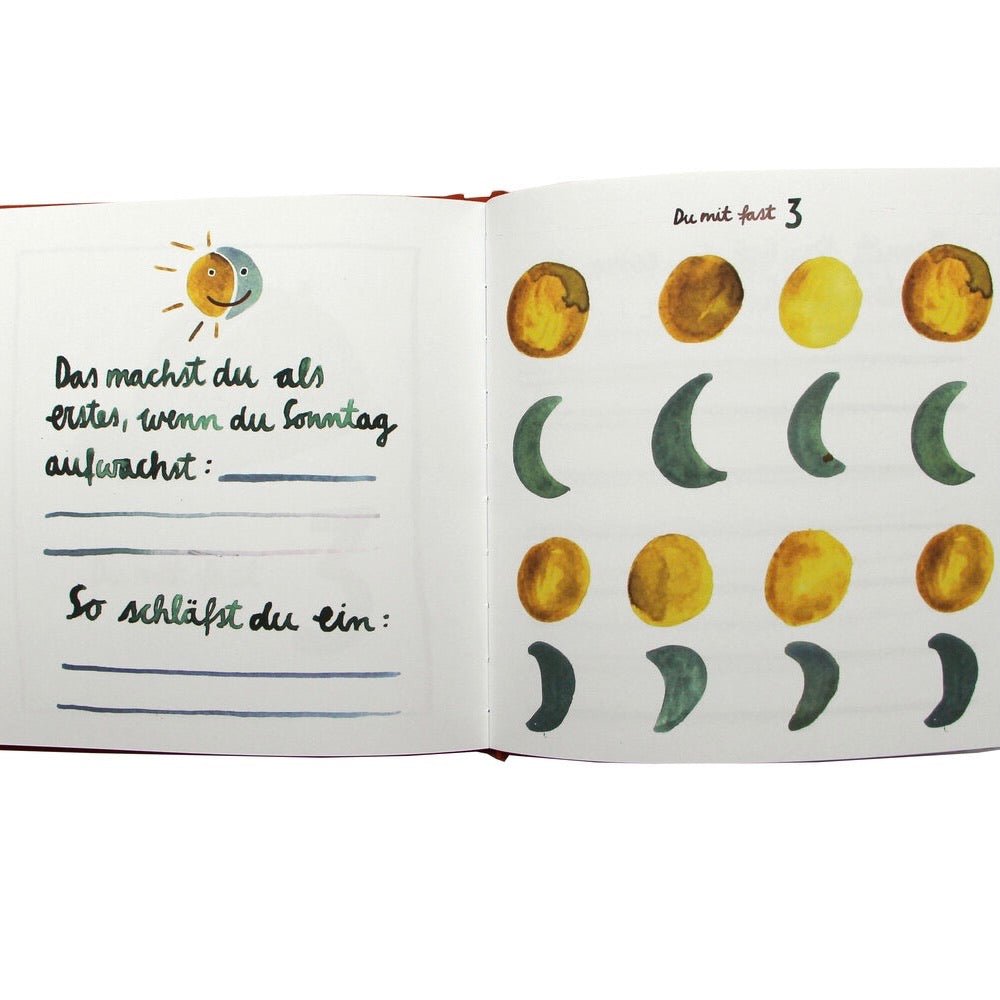 Das machst du als
erstes, wenn du Sonntag
aufwachst:
So schläfst du ein:
Du mit fast 3